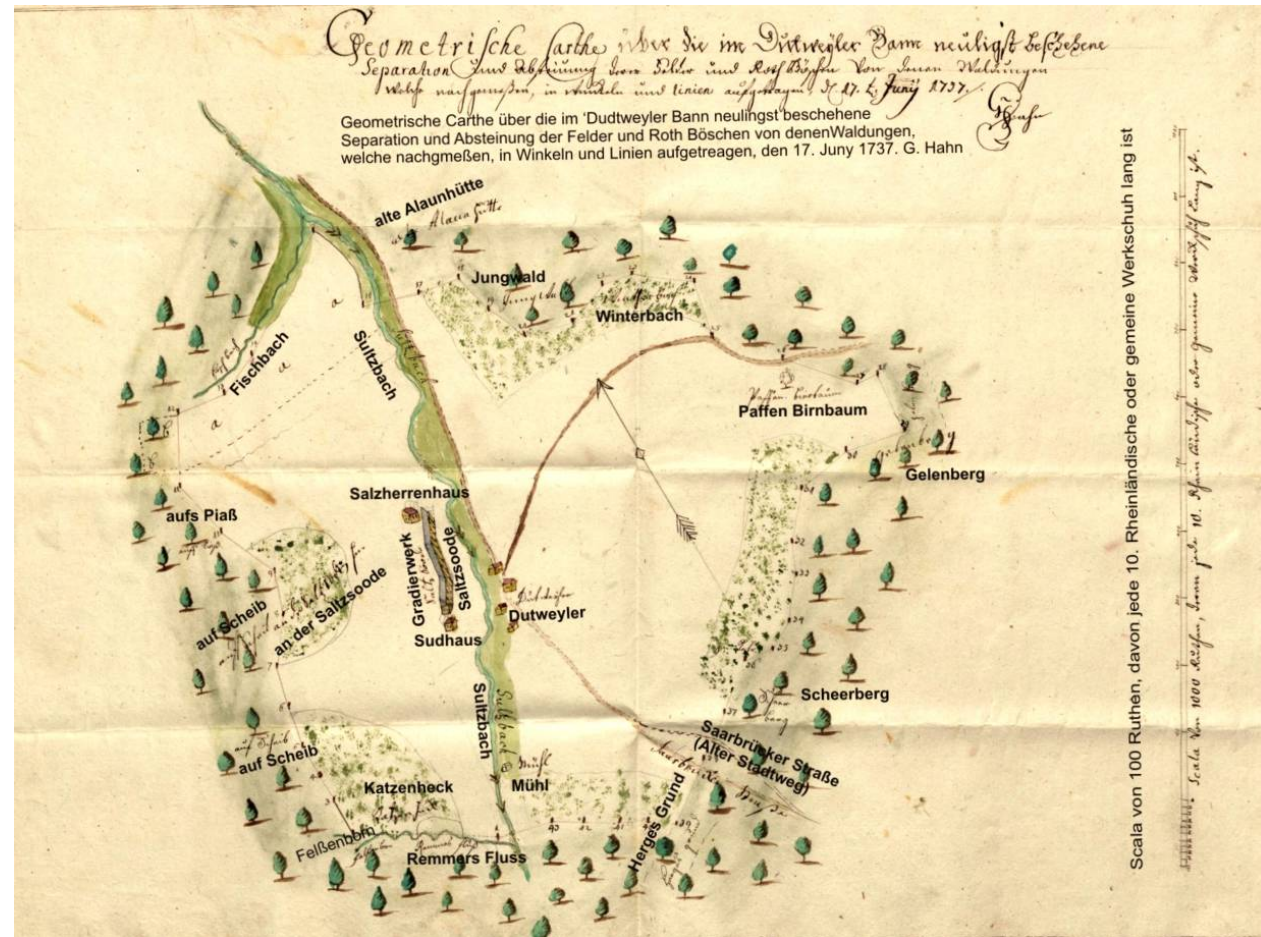 Geometrische Carthe über die im Dutweyler Bann neuligst beschehene
Separation und Absteinung derer Felder und Roth Böschen Von denen Waldungen
Welche nachgemeßen, in winckeln und Linien aufgetragen, d. 17. t. Junij 1737.
G Hahn
Geometrische Carthe über die im 'Dudtweyler Bann neulingst beschehene
Separation und Absteinung der Felder und Roth Böschen von denenWaldungen,
welche nachgmeßen, in Winkeln und Linien aufgetreagen, den 17. Juny 1737. G. Hahn
alte Alaunhütte
Alaun hütte
Jungwald
Jungwald
Winterbach
Winterbach
Fischbach
Fischbach
Sultzbach
Sultzbach
Paffen birnbaum
Paffen Birnbaum
Gelenberg
Gelenberg
Salzherrenhaus
aufs Piaß
Gradierwerk
Saltz soode
Saltzsoode
Sudhaus
Dutweiler
Dutweyler
auf Scheib
an der Saltzsoode
Scheerberg
Scheer
berg
Sultzbach
Sultzbach
Saarbrücker Straße
(Alter Stadtweg)
Saarbrücker Straße
auf Scheib
auf Scheib
Mühl
Mühl
Katzenheck
Herges Grund
Felßenborn
Remmers Fluss
Scala von 100 Ruthen, davon jede 10. Rheinländische oder gemeine Werkschuh lang ist
Scala von 1000 Ruthen, deren jede 10. Rheinländische oder gemeine Werckschuh lang ist.